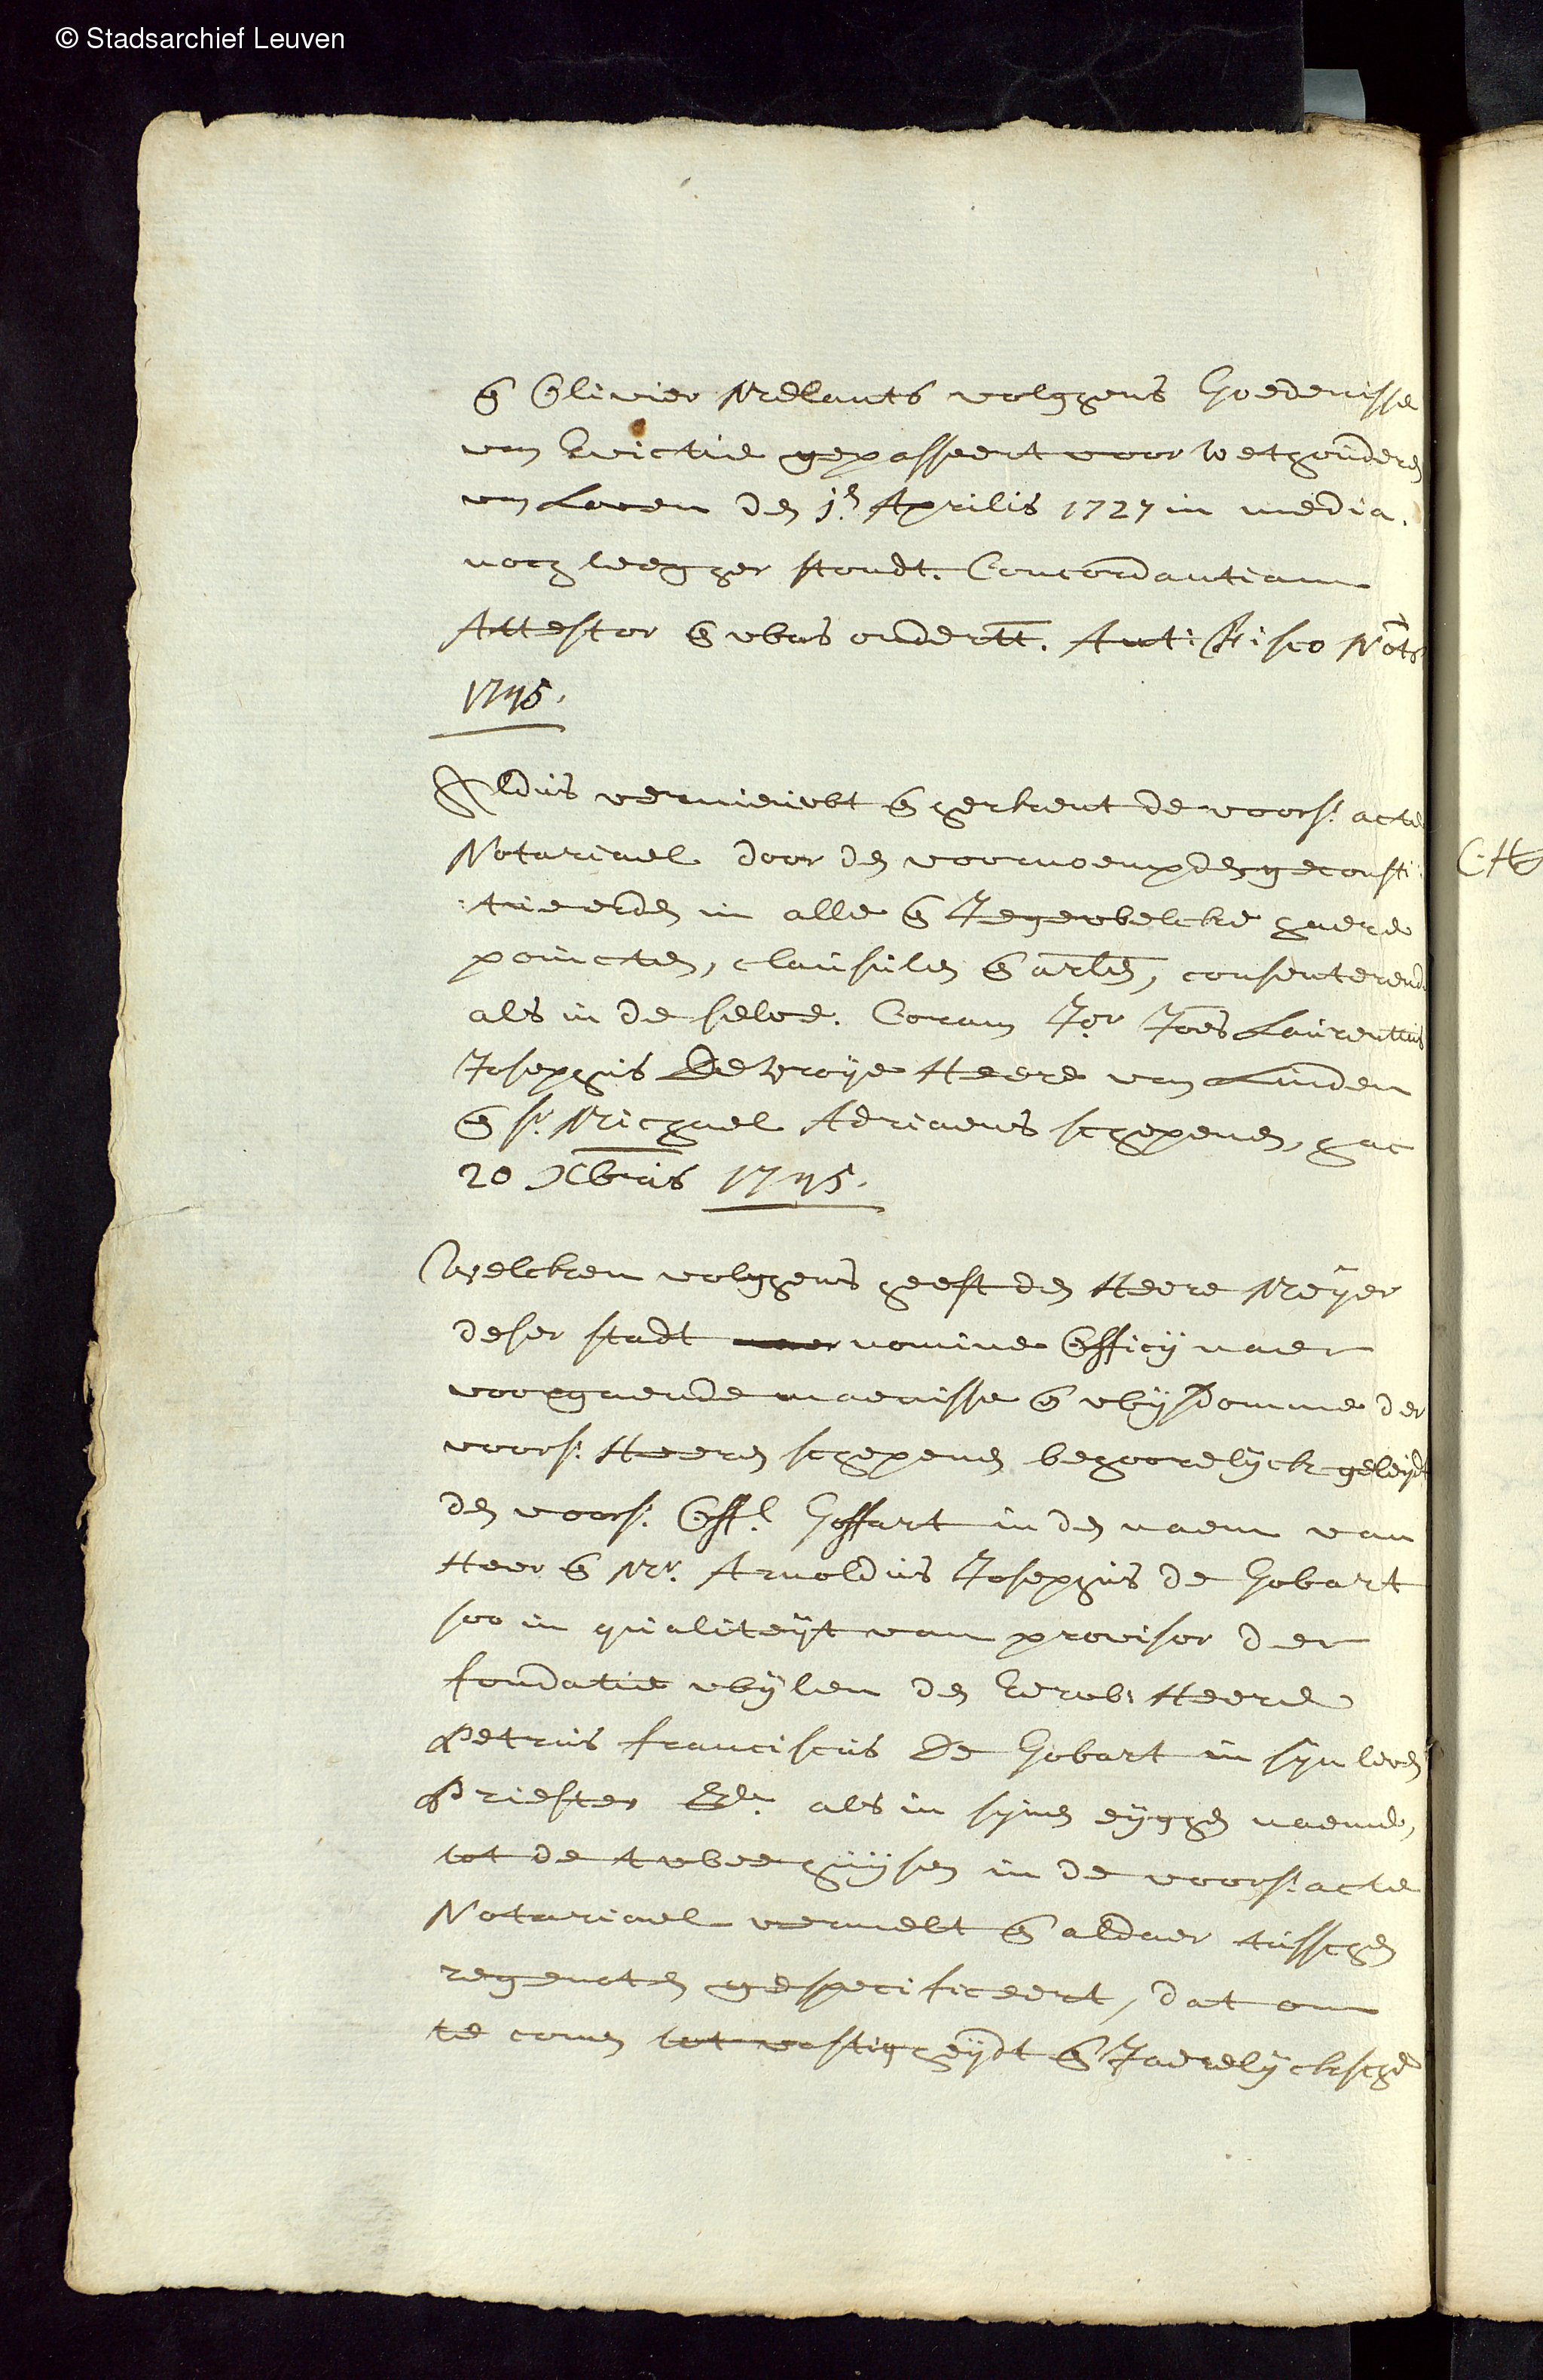 © Stadsarchief Leuven
en Olivier Melants volghens Goedenisse
van Evictie gepasseert voor wethouderen
van Loven den jen Aprilis 1727 in media.
noch leegher stondt. Concordantiam
Attestor en was ondertt. Ant: Fisco Nots
1745.
Aldus vernieuwt en herkent de voors: acte
Notariael door den voornoempden geconsti:
:tueerden in alle en Jegewelcke haere
poincten, clausulen en arlen, consenterende
als in de selve. Coram Jor Joes Laurentius
Josephus De Wroije Heere van Linden
en sr. Michael Adriaens schepenen, hac
20 Xbris 1745.
Welcken volghens heeft den Heere Meijer
deser stadt nomine Officij naer
voorgaende maenisse en wijsdomme der
voors: Heeren schepenen behoorelijck geleijdt
den voors: Offl. Goffart in den naem van
Heer en Mr. Arnoldus Josephus de Hobart
soo in qualiteijt van provisor der
fondatie wijlen den Eerw: Heere
Petrus franciscus De Hobart in sijn leven
Priester &a. als in sijnen eijghen naeme,
tot de twee huijsen in de voors: acte
Notariael vermelt en aldaer tusschen
regenoten gespecificeert, dat om
te comen tot vastigheijdt en Jaerelijcksche